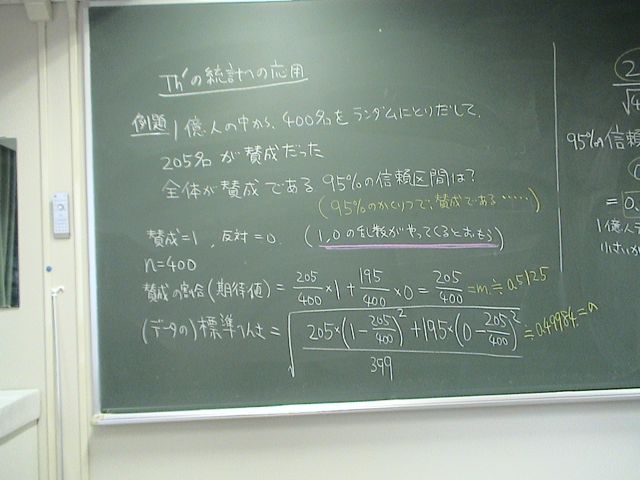 Th'の統計への応用
例題 1億人の中から、400名をランダムにとりだして、
205名が賛成だった
全体が賛成である95%の信頼区間は?
(95%のかくりつで、賛成である……)
賛成=1, 反対=0. (1,0の乱数がやってくるとおもう)
n=400
賛成の割合(期待値) = 205/400 × 1 + 195/400 × 0 = 205/400 = m ≒ 0.5125
(データの)標準へんさ = √((205×(1-205/400)² + 195×(0-205/400)²)/399) ≒ 0.49984 = a
95%の信頼
= 0.
1億人
小さい